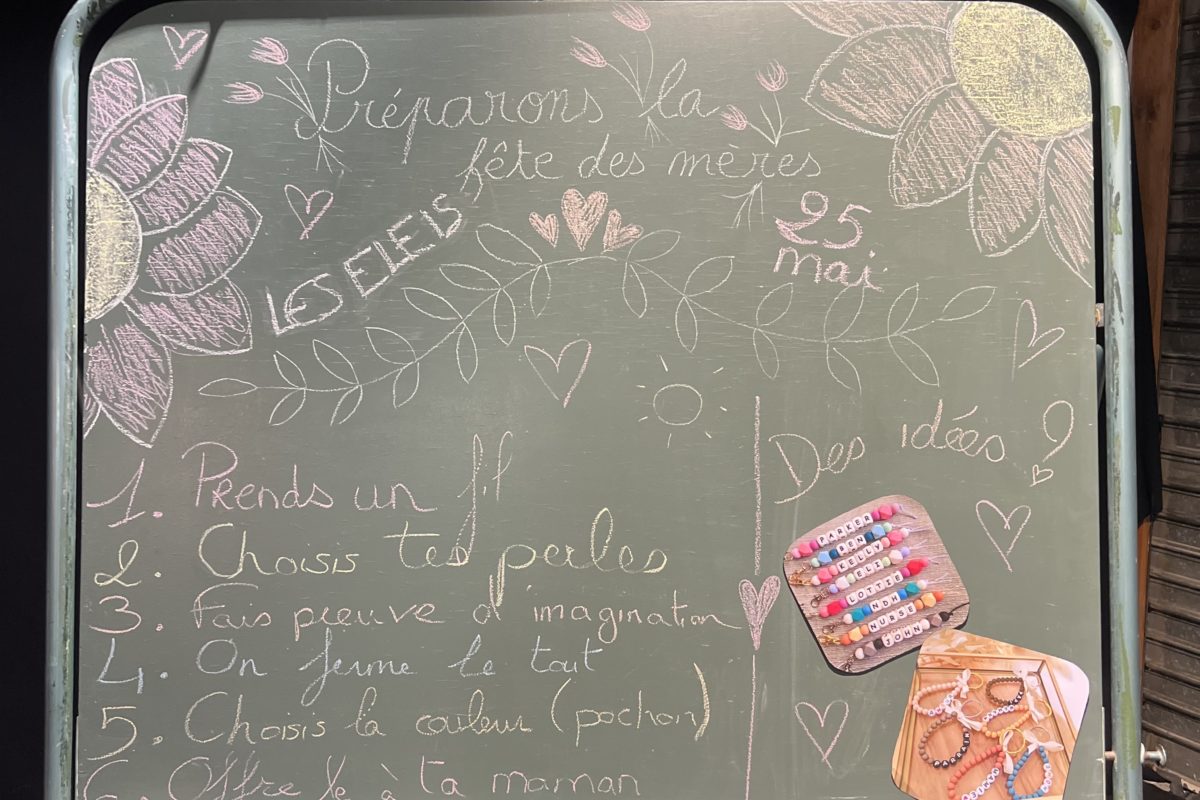 Préparons la
fête des mères
25
mai
Des idées ?
1. Prends un fil
2. Choisis tes perles
3. Fais preuve d'imagination
4. On ferme le tout
5. Choisis la couleur (pochon)
6. Offre le à ta maman
PARKER
BEN
KELLY
ELI
LOTTIE
NDH
NURSE
JOHN